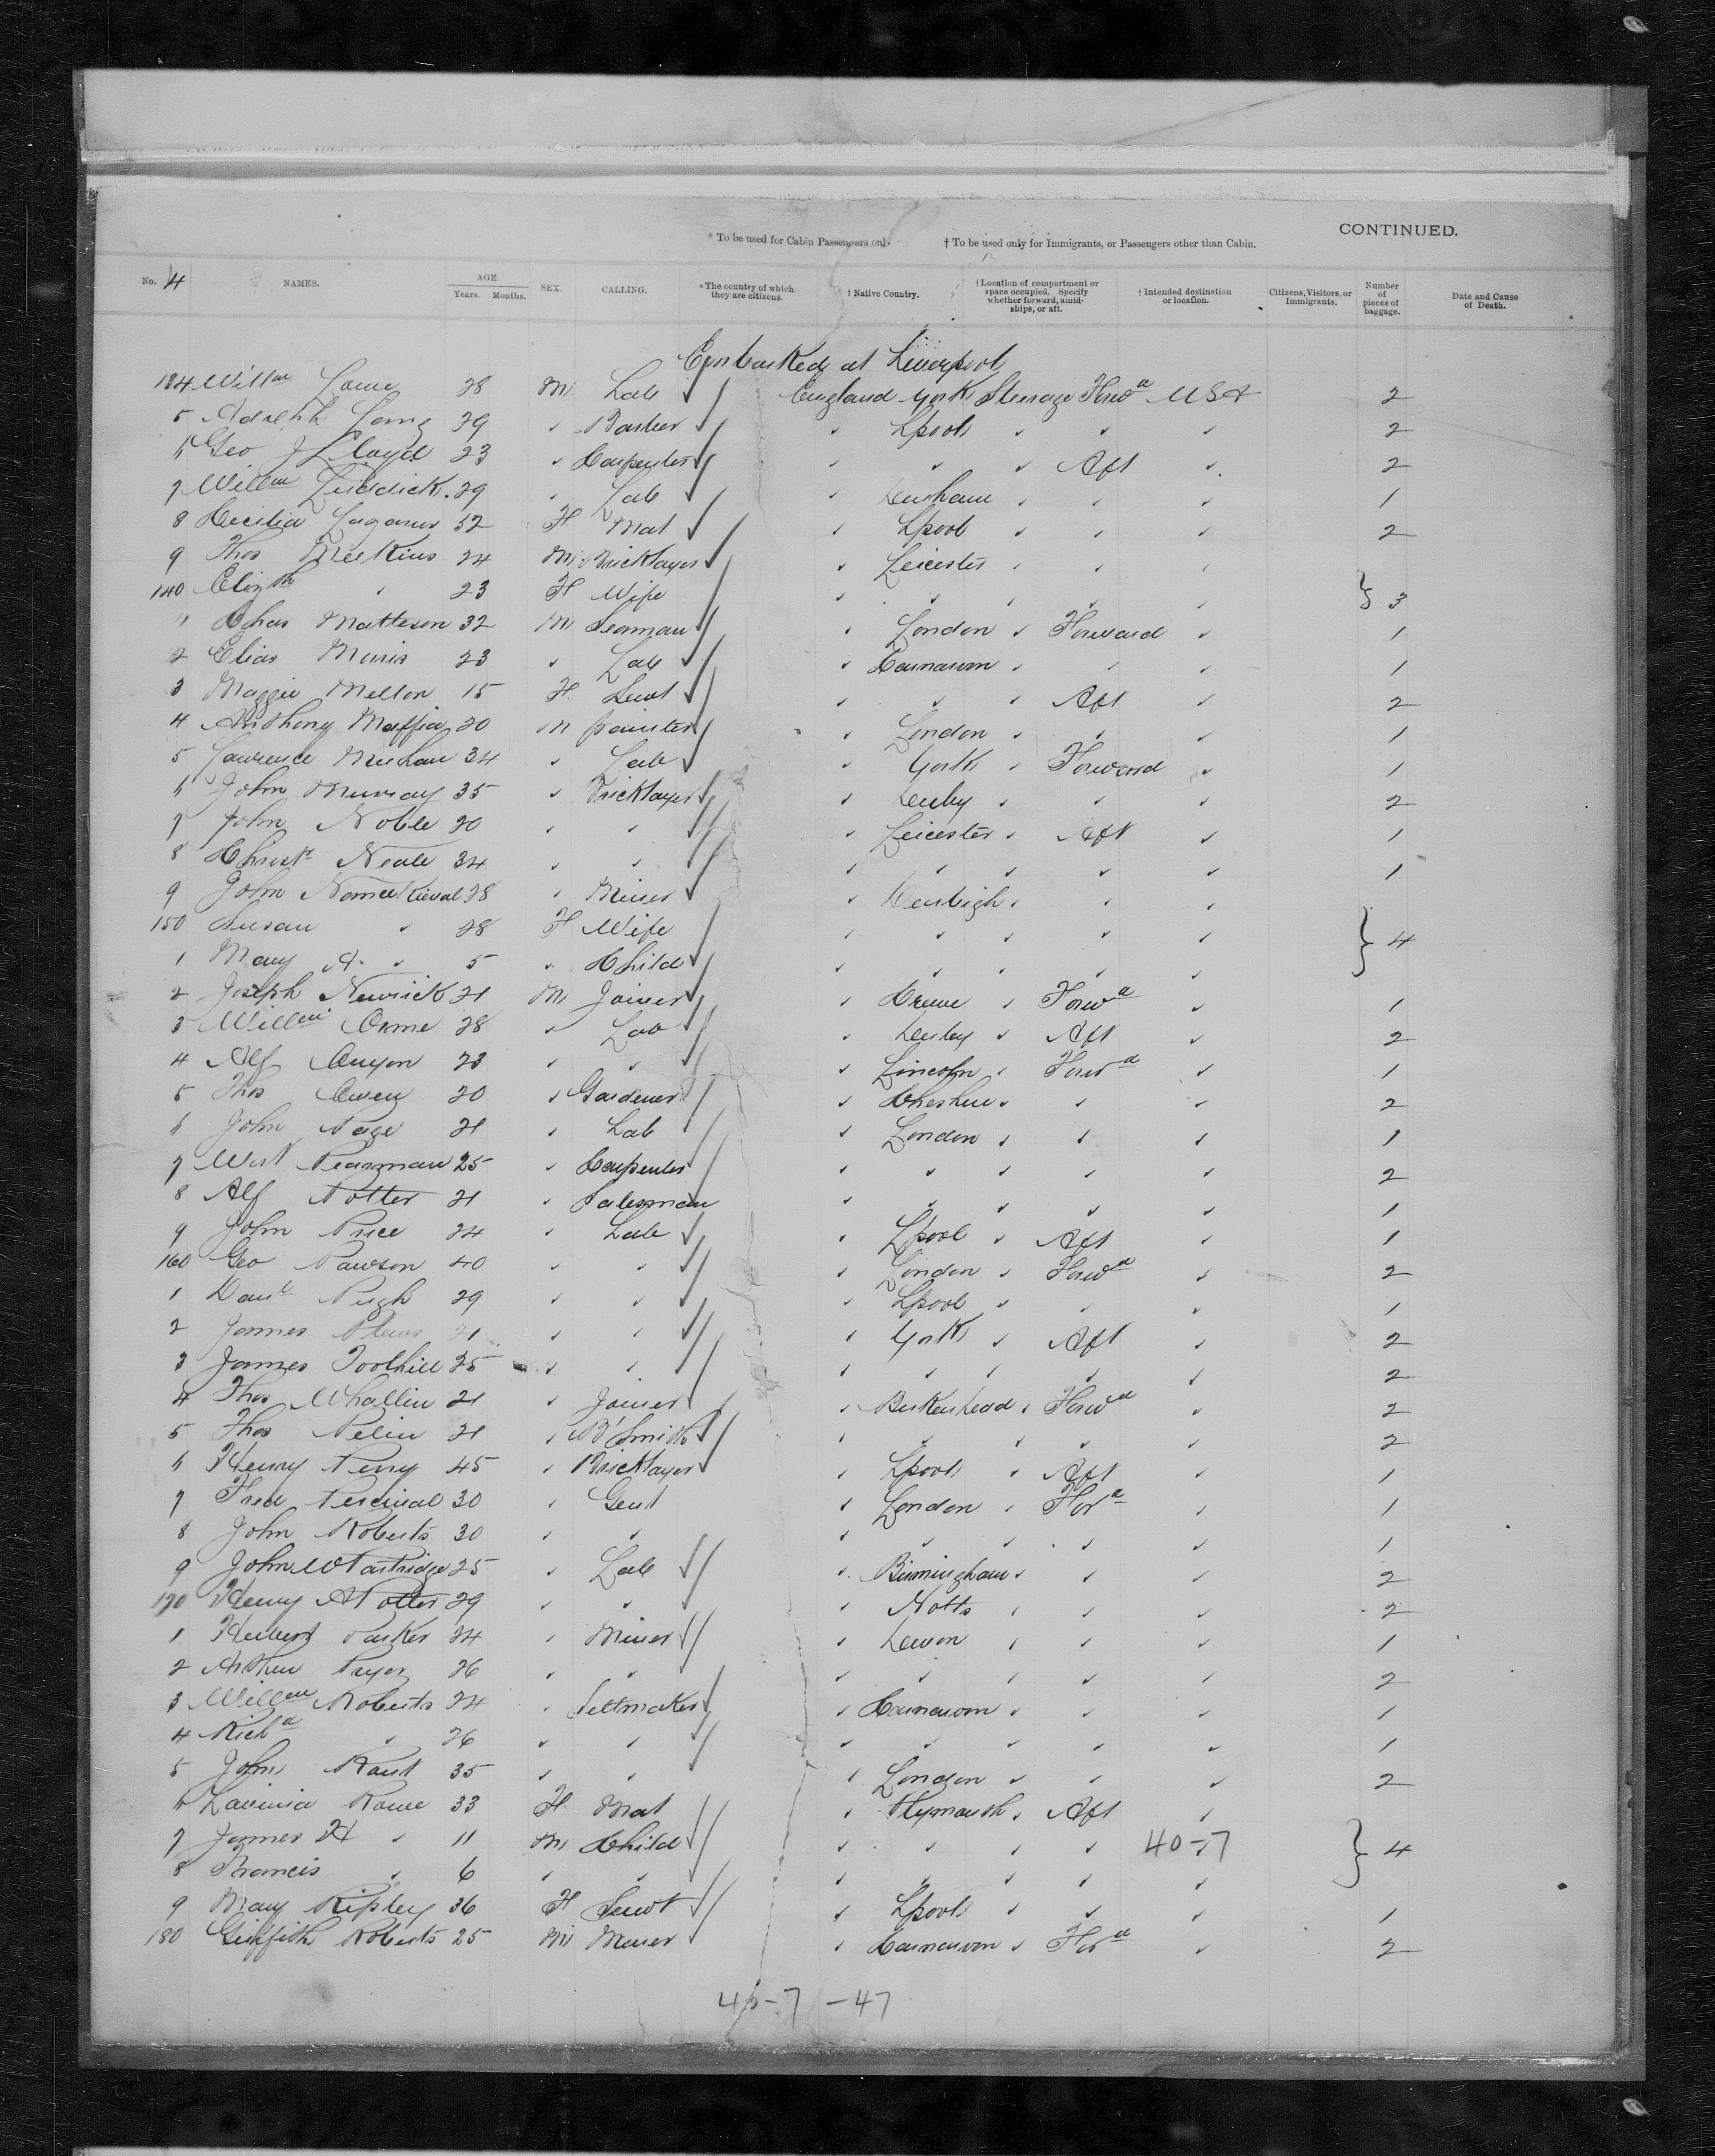 CONTINUED.
* To be used for Cabin Passengers only. † To be used only for Immigrants, or Passengers other than Cabin.
No. 4 NAMES. AGE. Years. Months. SEX. CALLING. * The country of which they are citizens. † Native Country. † Location of compartment or space occupied. Specify whether forward, amidships, or aft. † Intended destination or location. Citizens, Visitors, or Immigrants. Number of pieces of baggage. Date and Cause of Death.
Embarked at Liverpool
134 Willm 28 M Lab England York Steerage Forwd USA 2
5 Adolph 29 " Lpool " " " 2
6 Geo J Lloyd 23 " Carpenter " " " Aft " 2
7 Willm 29 " Lab " " " " 1
8 Cecilia 32 F Mat " Lpool " " " 2
9 Thos Meekins 24 M Bricklayer " Leicester " " "
140 Elizth " 23 F Wife " " " " " } 3
1 Chas Matteson 32 M Seaman " London " Forward " 1
2 Elias 23 " Lab " Carnarvon " " " 1
3 Maggie Mellon 15 F Servt " " " Aft " 2
4 Anthony Maffia 20 M painter " London " " " 1
5 Lawrence 34 " Lab " York " Forward " 1
6 John Murray 35 " Bricklayer " Derby " " " 2
7 John Noble 20 " " " Leicester " Aft " 1
8 Christr Neale 34 " " " " " " " 1
9 John 28 " Miner " Denbigh " " "
150 Susan " 28 F Wife " " " " " } 4
1 Mary A. " 5 " Child " " " " "
2 Joseph Newrick 21 M Joiner " Crewe " Forwd " 1
3 Willm Orme 28 " Lab " Derby " Aft " 2
4 Alf 23 " " " Lincoln " Forwd " 1
5 Thos Owen 20 " Gardener " Cheshire " " " 2
6 John Page 21 " Lab " London " " " 1
7 Pearman 25 " Carpenter " " " " " 2
8 Alf Potter 21 " Salesman " " " " " 1
9 John Price 24 " Lab " Lpool " Aft " 1
160 Geo Pawson 40 " " " London " Forwd " 2
1 Danl Pugh 29 " " " Lpool " " " 1
2 James Plews 21 " " " York " Aft " 2
3 James Toothill 25 " " " " " " " 2
4 Thos Whallin 21 " Joiner " Birkenhead " Forwd " 2
5 Thos 21 " B'Smith " " " " " 2
6 Henry Perry 45 " Bricklayer " Lpool " Aft " 1
7 Fred Percival 30 " Gent " London " Ford " 1
8 John Roberts 30 " " " " " " " 1
9 John W Partridge 25 " Lab " Birmingham " " " 2
170 Henry A Potter 29 " " " Notts " " " 2
1 Herbert Parker 24 " Miner " Devon " " " 1
2 Arthur Pryor 26 " " " " " " " 2
3 Willm Roberts 24 " Settmaker " Carnarvon " " " 1
4 Richd " 26 " " " " " " " 1
5 John 35 " " " London " " " 2
6 Lavinia Rowe 33 F Mat " Plymouth " Aft "
7 James H " 11 M Child " " " " 40-7 } 4
8 Francis " 6 " " " " " " "
9 Mary Ripley 36 F Servt " Lpool " " " 1
180 Griffith Roberts 25 M Miner " Carnarvon " Ford " 2
40-7 -47